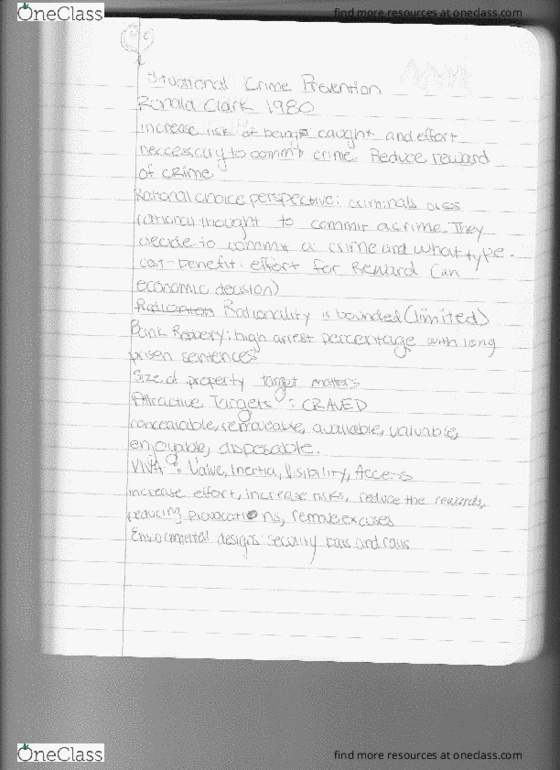 OneClass
find more resources at oneclass.com
Situational Crime Prevention
Ronald Clark 1980
increase risk of being caught and effort
neccessary to commit crime. Reduce reward
of crime
Rational choice perspective: criminals uses
rational thought to commit a crime. They
decide to commit a crime and what type.
cost-benefit: effort for Reward (an
economic decision)
Rationality is bounded (limited)
Bank Robery: high arrest percentage with long
prisen sentences
Size of property target matters
Attractive Targets: CRAVED
concealable, removeable, available, valuable,
enjoyable, disposable.
VIVA: Value, Inertia, Visibility, Access
increase effort, increase risks, reduce the rewards,
reducing provocations, remove excuses
designs: security bars and
OneClass
find more resources at oneclass.com